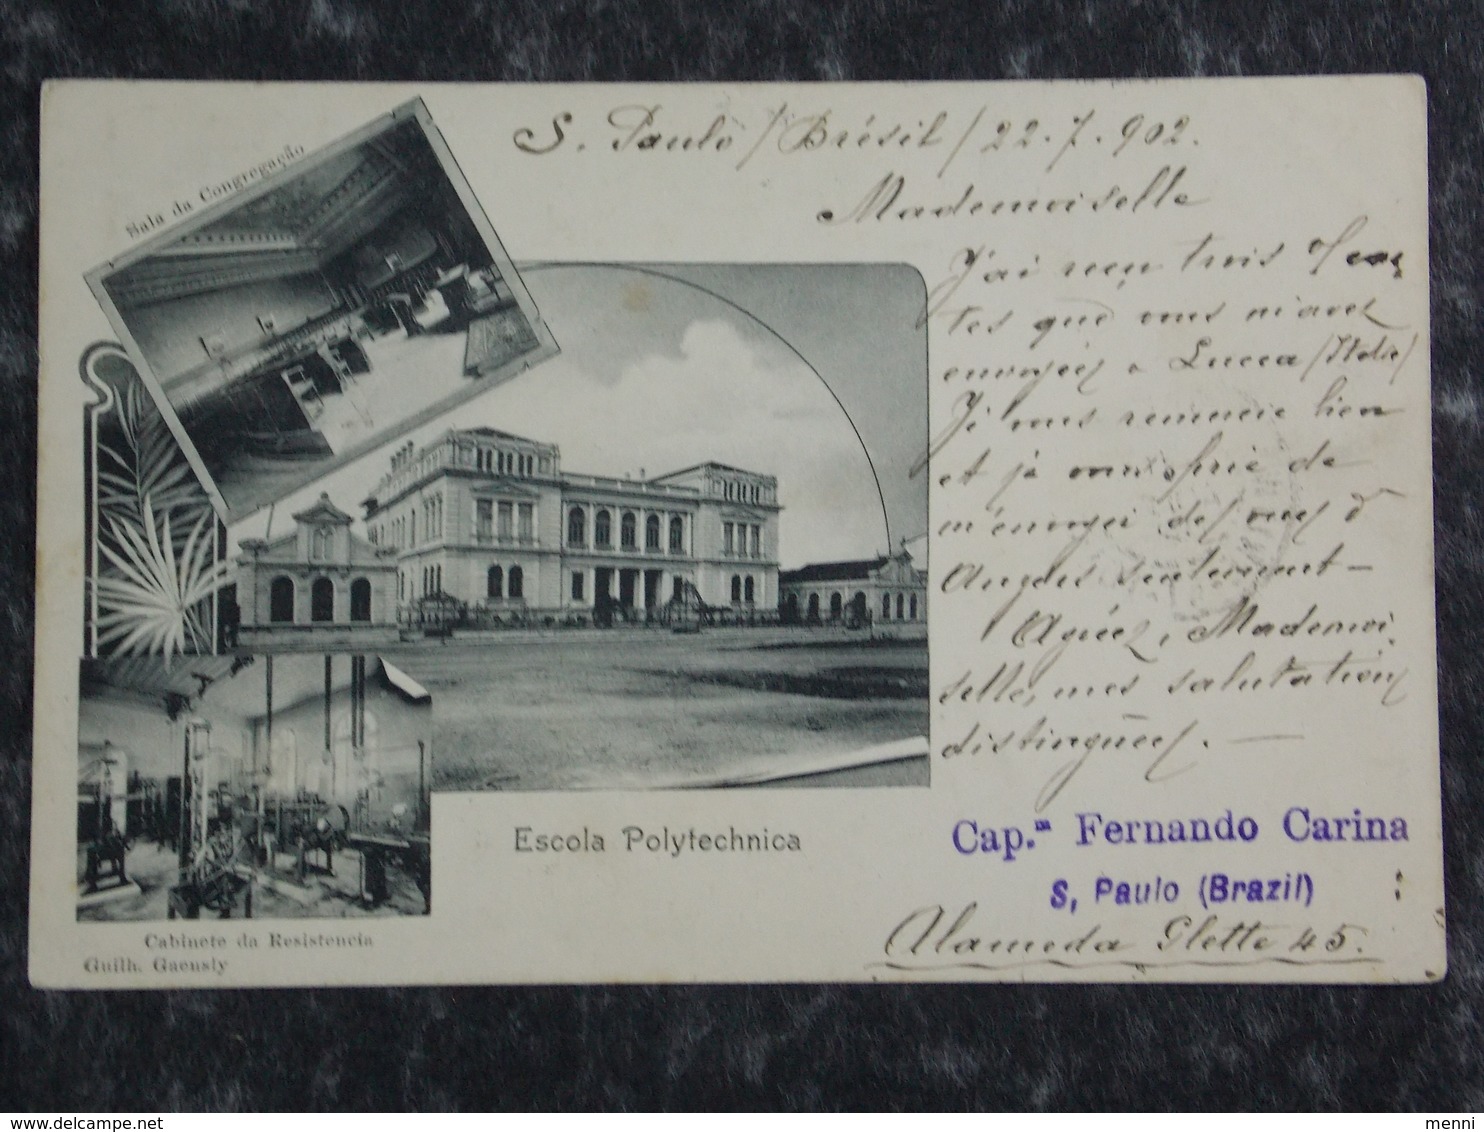 S. Paulo / Brésil / 22.7.902.
Mademoiselle
J'ai reçu trois
tes que vous m'avez
envoyées a Lucca (Italie)
Je vous remercie bien
et je vous prie de
m'envoyer des vues d
Anzas seulement —
Agréez, Mademoi
selle, mes salutations
distinguées. —
Cap.ᵐ Fernando Carina
S, Paulo (Brazil)
Alameda Glette 45.
Sala da Congregação
Escola Polytechnica
Cabinete da Resistencia
Guilh. Gaensly
menni